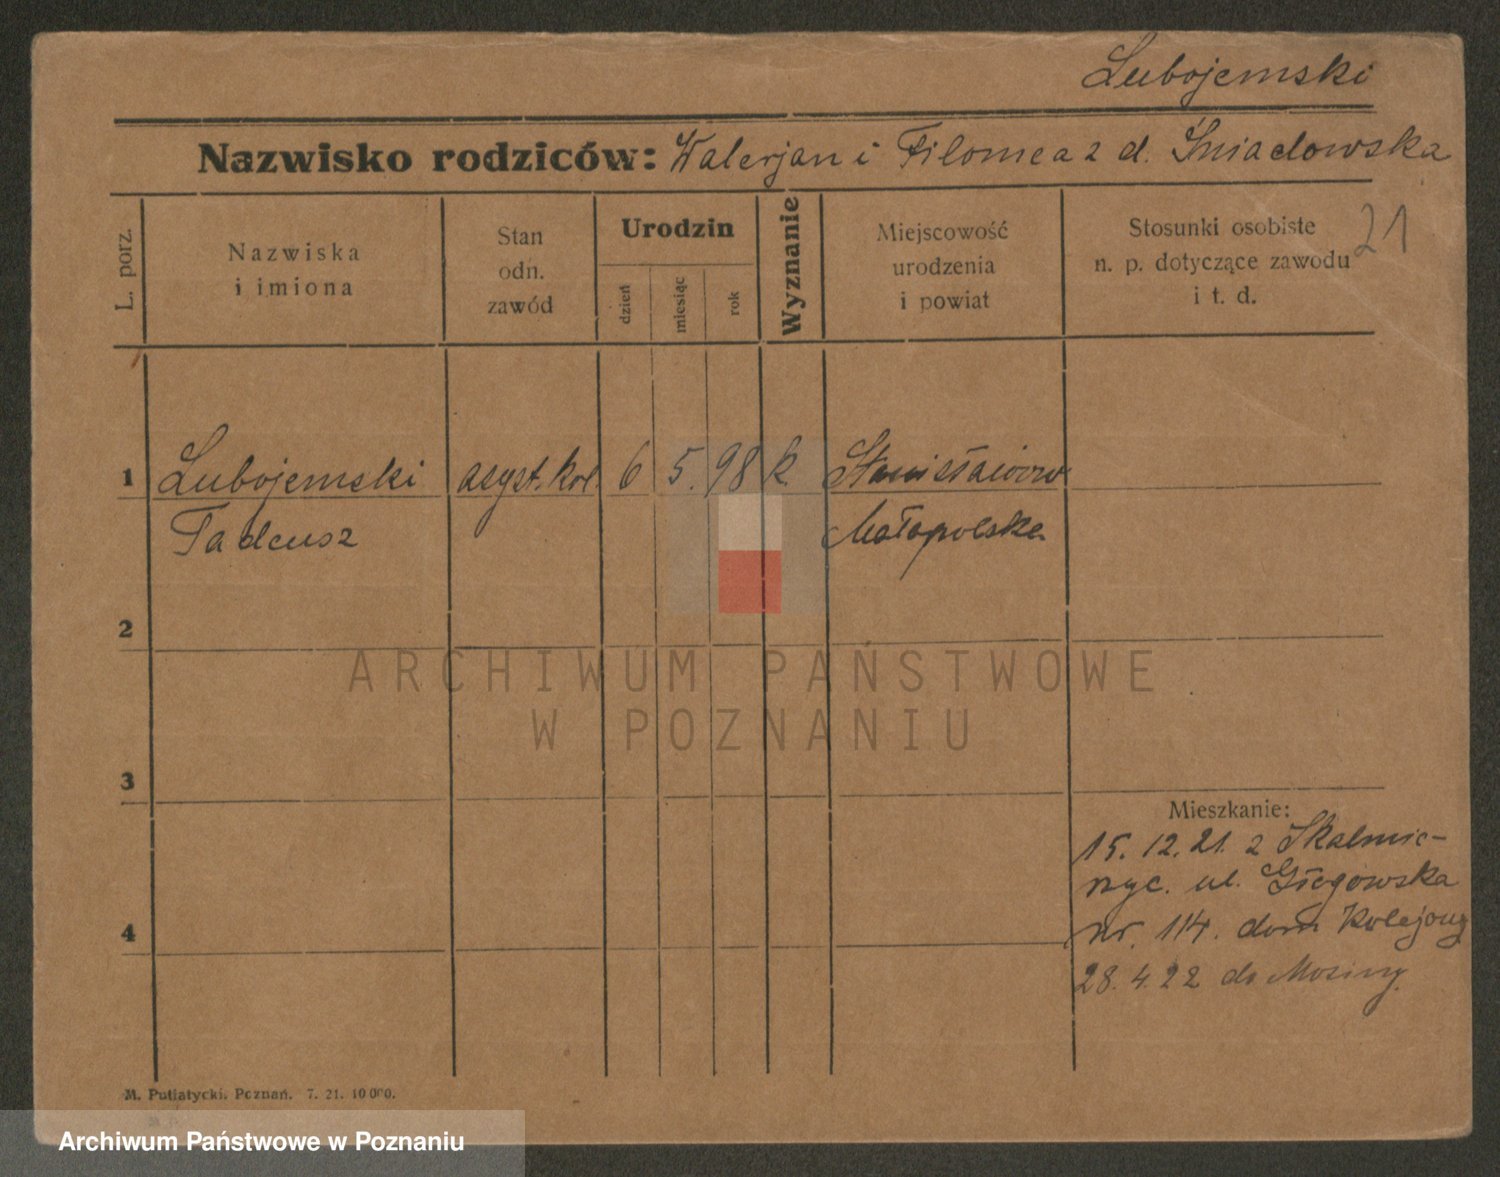 Lubojemski
Nazwisko rodziców: Walerjan i Filomea z d. Śniadowska
L. porz.
Nazwiska
i imiona
Stan
odn.
zawód
Urodzin
dzień
miesiąc
rok
Wyznanie
Miejscowość
urodzenia
i powiat
Stosunki osobiste
n. p. dotyczące zawodu
i t. d.
21
1 Lubojemski asyst. kol. 6 5. 98 k Stanisławow
Tadeusz Małopolska
2
3
4
Mieszkanie:
15. 12. 21. z Skalmie-
rzyc. ul. Głogowska
nr. 114. dom Kolejowy
28. 4. 22 do Mosiny.
M. Putiatycki. Poznań. 7. 21. 10 000.
ARCHIWUM PAŃSTWOWE
W POZNANIU
Archiwum Państwowe w Poznaniu